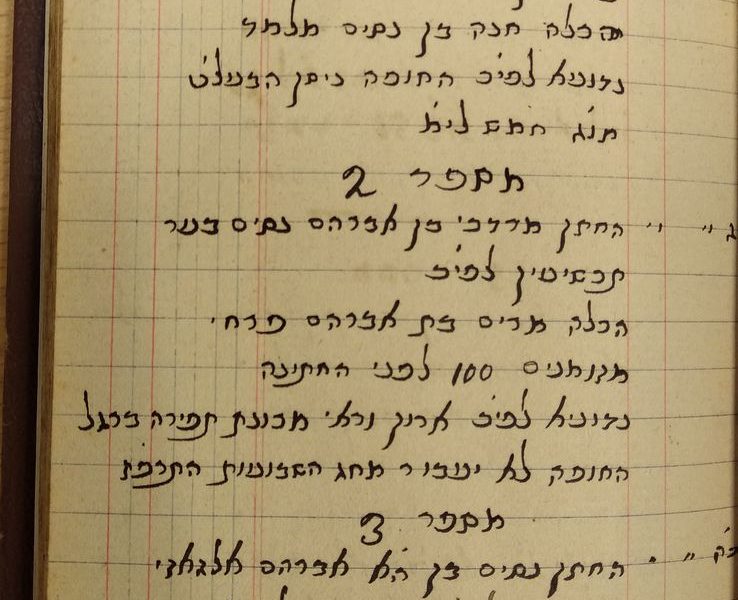 הכלה חנה בן נסים מלמד
נדוניא לפי״כ החופה ניתן
תו״ג חמש לי״מ
מספר 2
החתן מרדכי בן אברהם נסים
תכשיטין לפי״כ
הכלה מרים בת אברהם פרחי
מזומנים 100 לפני החתונה
נדוניא לפי״כ ארון וראי מכונת תפירה ברגל
החופה לא יעבור מחג השבועות
מספר 3
החתן נסים בן ה״א אברהם אלגאזי